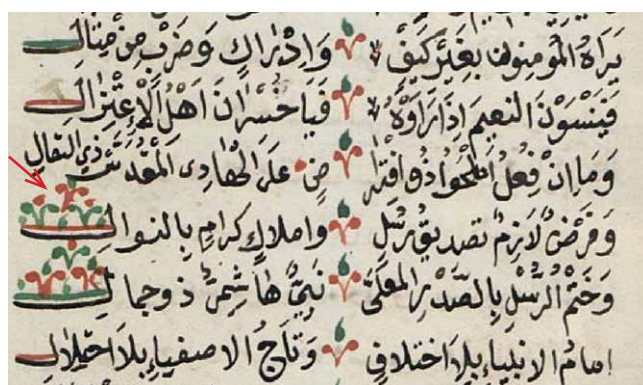 يَرَاهُ الْمُومِنُونَ بِغَيْرِ كَيْفٍ وَاِدْرَاكٍ وَضَرْبٍ مِنْ مِثَالِ
فَيَنْسَوْنَ النَّعِيمَ اِذَا رَاَوْهُ فَيَا خُسْرَانَ اَهْلِ الْاِعْتِزَالِ
وَمَا اِنْ فِعْلُ اَصْلَحُ ذُو افْتِرَاضٍ عَلَى الْهَادِى الْمُقَدَّسِ ذِي التَّعَالِ
وَفَرْضٌ لَازِمٌ تَصْدِيقُ رُسْلٍ وَاملاكٍ كرامٍ بِالنوالِ
وَخَتْمُ الرُّسْلِ بِالصَّدْرِ الْمُعَلَّى نَبِيٌّ هَاشِمِيٌّ ذو جمالِ
امامُ الانبياءِ بِلَا اختلافٍ وَتَاجُ الاصفياءِ بِلَا احْتِلَالِ